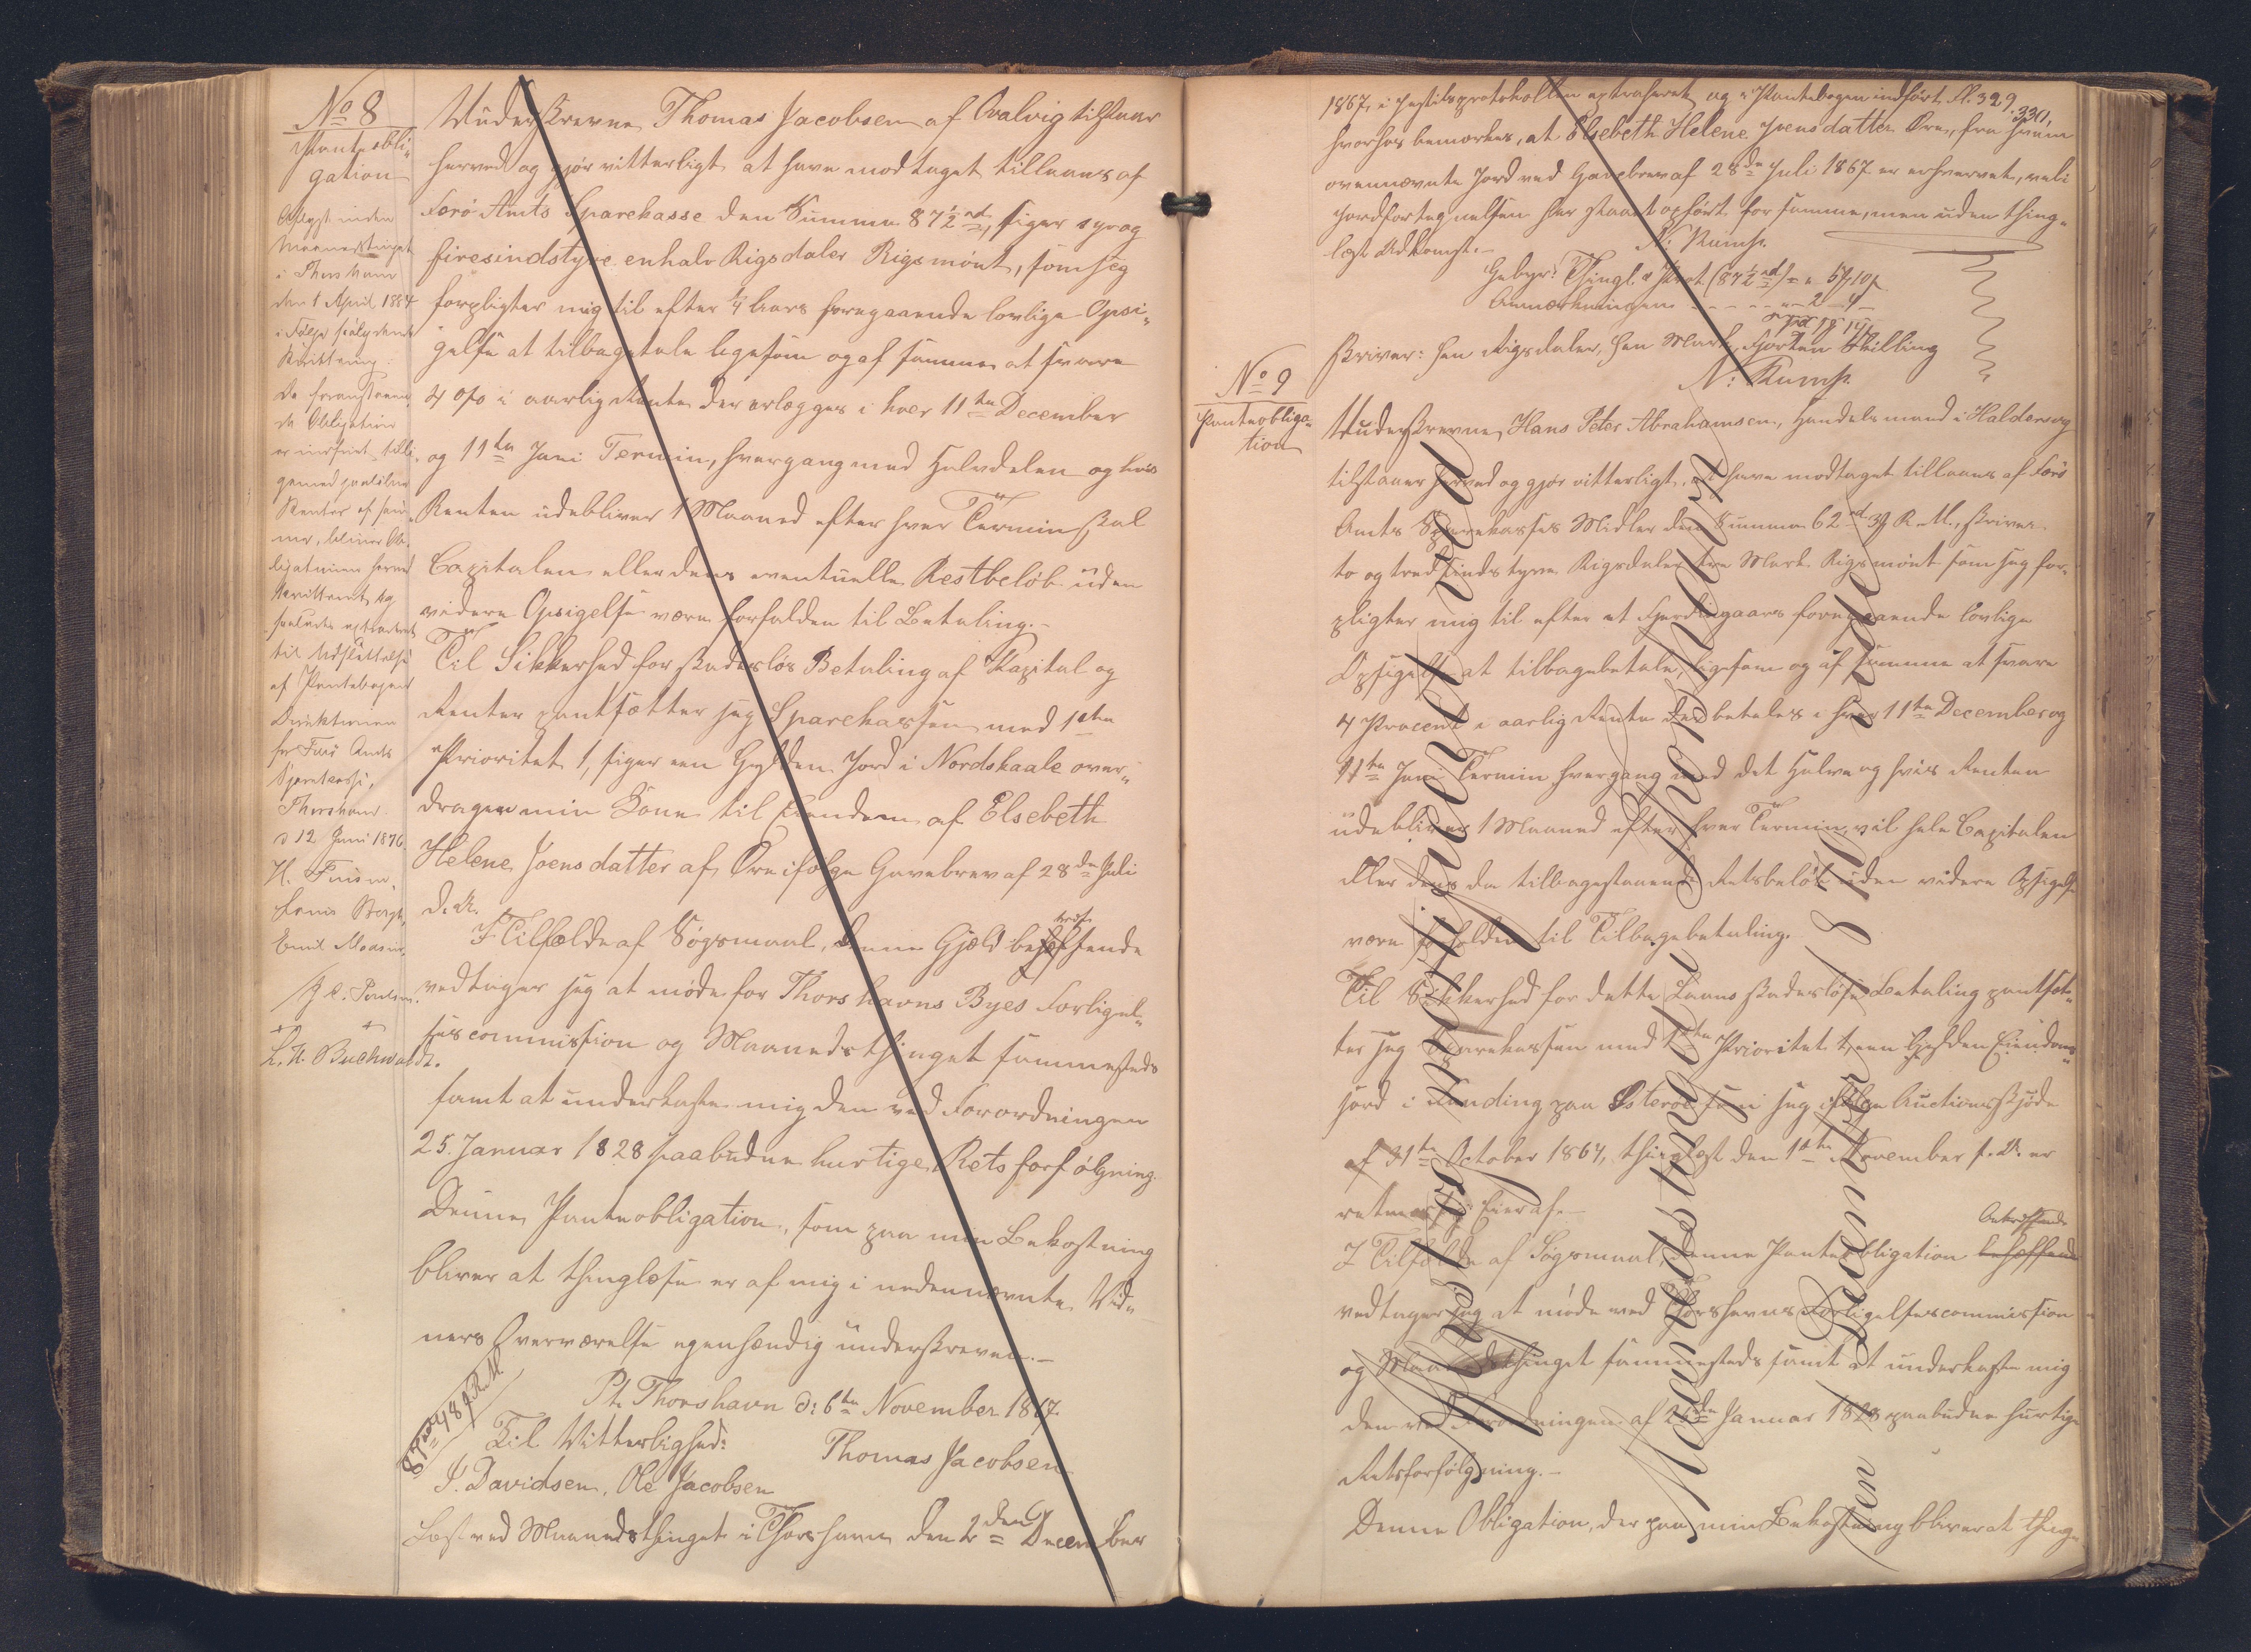 No 8
Panteobli„
gation
Aflyst inden
Maanedsthinget
i Thorshavn
den 1 April 1884
i Følge saalydende
Qvittering:
De foranstaaen„
de Obligation
er indfriet tilli„
gemed paaløbne
Renter af sam„
me, bliver Ob„
ligationen herved
qvitteret og
saaledes extraderet
til Udslettelse
af Pantebogen
Direktionen
for Færø Amts
Sparekasse,
Thorshavn
d 12 Juni 1876.
H. Finsen.
Louis Bergh,
Emil Madsen.
J. C. Poulsen.
L. H. Buchwaldt.
Underskrevne Thomas Jacobsen af Qvalvig tilstaar
herved og gjør vitterligt at have modtaget tillaans af
Færø Amts Sparekasse den Summa 87½ rd, siger syv og
firesindstyve en halv Rigsdaler Rigsmønt, som jeg
forpligter mig til efter ¼ Aars foregaaende lovlige Opsi„
gelse at tilbagebetale ligesom og af samme at svare
4 o/o i aarlig Rente der erlægges i hver 11te December
og 11te Juni Termin, hvergang med Halvdelen og hvis
Renten udebliver 1 Maaned efter hver Termin skal
Capitalen eller dens eventuelle Restbeløb uden
videre Opsigelse være forfalden til Betaling.–
Til Sikkerhed for skadesløs Betaling af Kapital og
Renter pantsætter jeg Sparekassen med 1ste
Prioritet 1, siger een Gylden Jord i Nordskaale over„
dragen min Kone til Eiendom af Elsebeth
Helene Joensdatter af Øre ifølge Gavebrev af 28de Juli
d. A.
I Tilfælde af Søgsmaal, denne Gjæld betræffende
vedtager jeg at møde for Thorshavns Byes Forligel„
sescommission og Maanedsthinget sammesteds
samt at underkaste mig den ved Forordningen
25. Januar 1828 paabudne hurtige Rets forfølgning.
Denne Panteobligation, som paa min Bekostning
bliver at thinglæse er af mig i nedennævnte Vid„
ners Overværelse egenhændig underskreven.–
Pt. Thorshavn d: 6te November 1867.
87 rd 48 s R.M.
Til Vitterlighed: Thomas Jacobsen
J. Davidsen, Ole Jacobsen
Læst ved Maanedsthinget i Thorshavn den 2den December
1867, i Justitsprotokollen extraheret og i Pantebogen indført Fl. 329. 330,
hvorhos bemærkes, at Elsebeth Helene Joensdatter Øre, fra hvem
ovennævnte Jord ved Gavebrev af 28de Juli 1867 er erhvervet, vel i
Jordfortegnelsen har staaet opført for samme, men uden thing„
læst Adkomst.–
N: Rump.
Gebyr: Thingl. & Prot. (87½ rd) = „ 5 10
Anmærkningen - - - - „ - 2 - 4 -
skriver: Een Rigsdaler, Een Mark, Fjorten Skilling
N: Rump.
No 9
Panteobliga„
tion
Underskrevne Hans Peter Abrahamsen, Handelsmand i Haldersvig
tilstaaer herved og gjør vitterligt, at have modtaget tillaans af Færø
Amts Sparekasses Midler den Summa 62 rd 3 R.M., skriver
to og tredsindstyve Rigsdaler tre Mark Rigsmønt som jeg for„
pligter mig til efter et Fjerdingaars foregaaende lovlige
Opsigelse at tilbagebetale, ligesom og af samme at svare
4 Procent i aarlig Rente der betales i hver 11te December og
11te Juni Termin hvergang med det Halve og hvis Renten
udebliver 1 Maaned efter hver Termin, vil hele Capitalen
eller dens da tilbagestaaende Restbeløb uden videre Opsigelse
være forfalden til Tilbagebetaling.
Til Sikkerhed for dette Laans skadesløse Betaling pantsæt„
ter jeg Sparekassen med 1ste Prioritet 1, een Gylden Eiendoms„
jord i Funding paa Østerø som jeg ifølge Auctionsskjøde
af 31te October 1867, thinglæst den 1ste November s. A. er
retmæssig Eier af.–
I Tilfælde af Søgsmaal, denne Panteobligation betræffende
vedtager jeg at møde ved Thorshavns Forligelsescommission
og Maanedsthinget sammesteds samt at underkaste mig
den ved Forordningen af 25de Januar 1828 paabudne hurtige
Retsforfølgning.–
Denne Obligation, der paa min Bekostning bliver at thing„